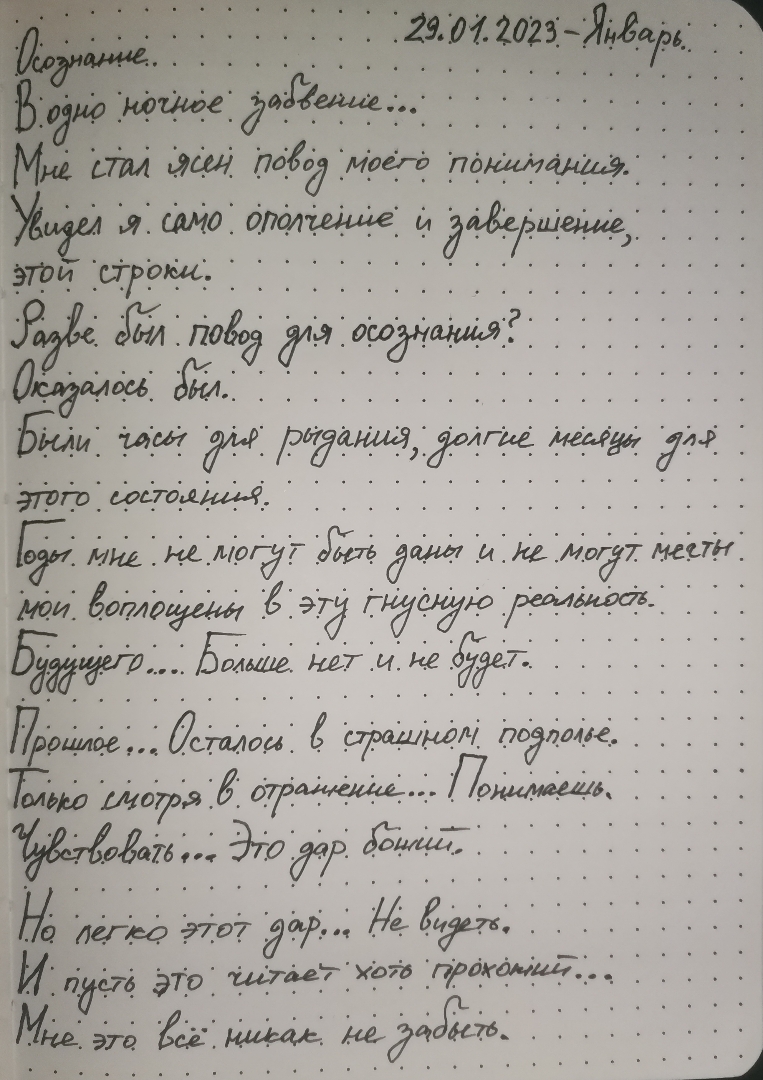 29.01.2023 – Январь.
Осознание.
В одно ночное забвение...
Мне стал ясен повод моего понимания.
Увидел я само ополчение и завершение,
этой строки.
Разве был повод для осознания?
Оказалось был.
Были часы для рыдания, долгие месяцы для
этого состояния.
Годы мне не могут быть даны и не могут мечты
мои воплощены в эту гнусную реальность.
Будущего.... Больше нет и не будет.
Прошлое... Осталось в страшном подполье.
Только смотря в отражение... Понимаешь.
Чувствовать... Это дар божий.
Но легко этот дар... Не видеть.
И пусть это читает хоть прохожий...
Мне это всё никак не забыть.